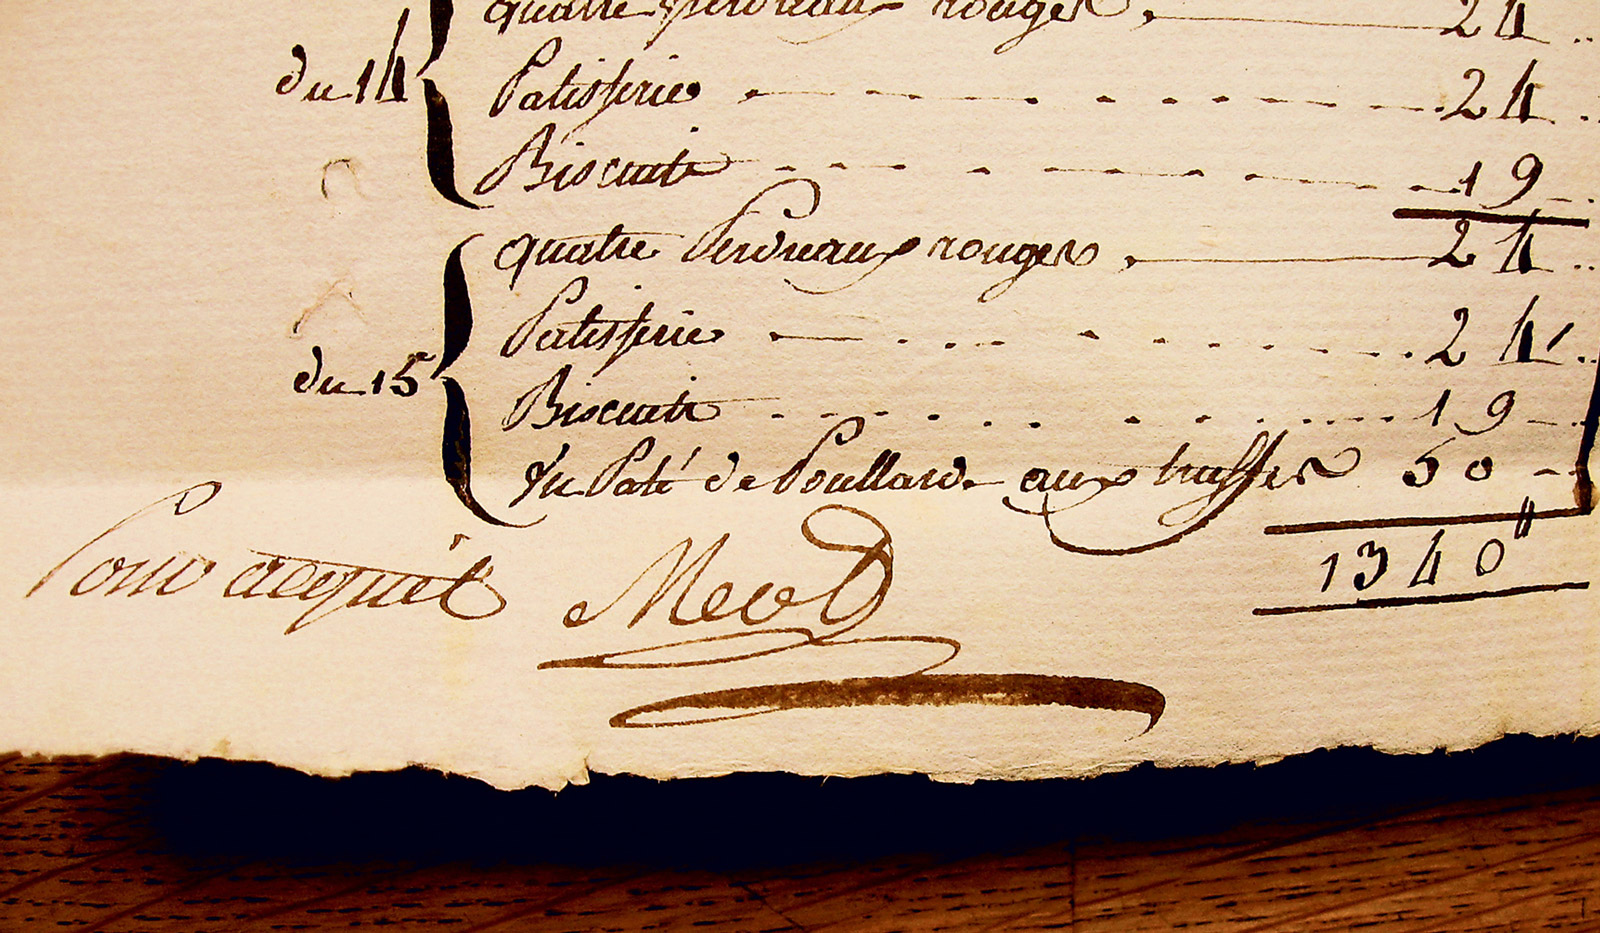 quatre perdreaux rouges, 24
du 14 Patisserie 24
Biscuits 19
quatre Perdreaux rouges, 24
Patisserie 24
du 15 Biscuits 19
Un Paté de Poullarde aux truffes 50
1340"
Pour acquit